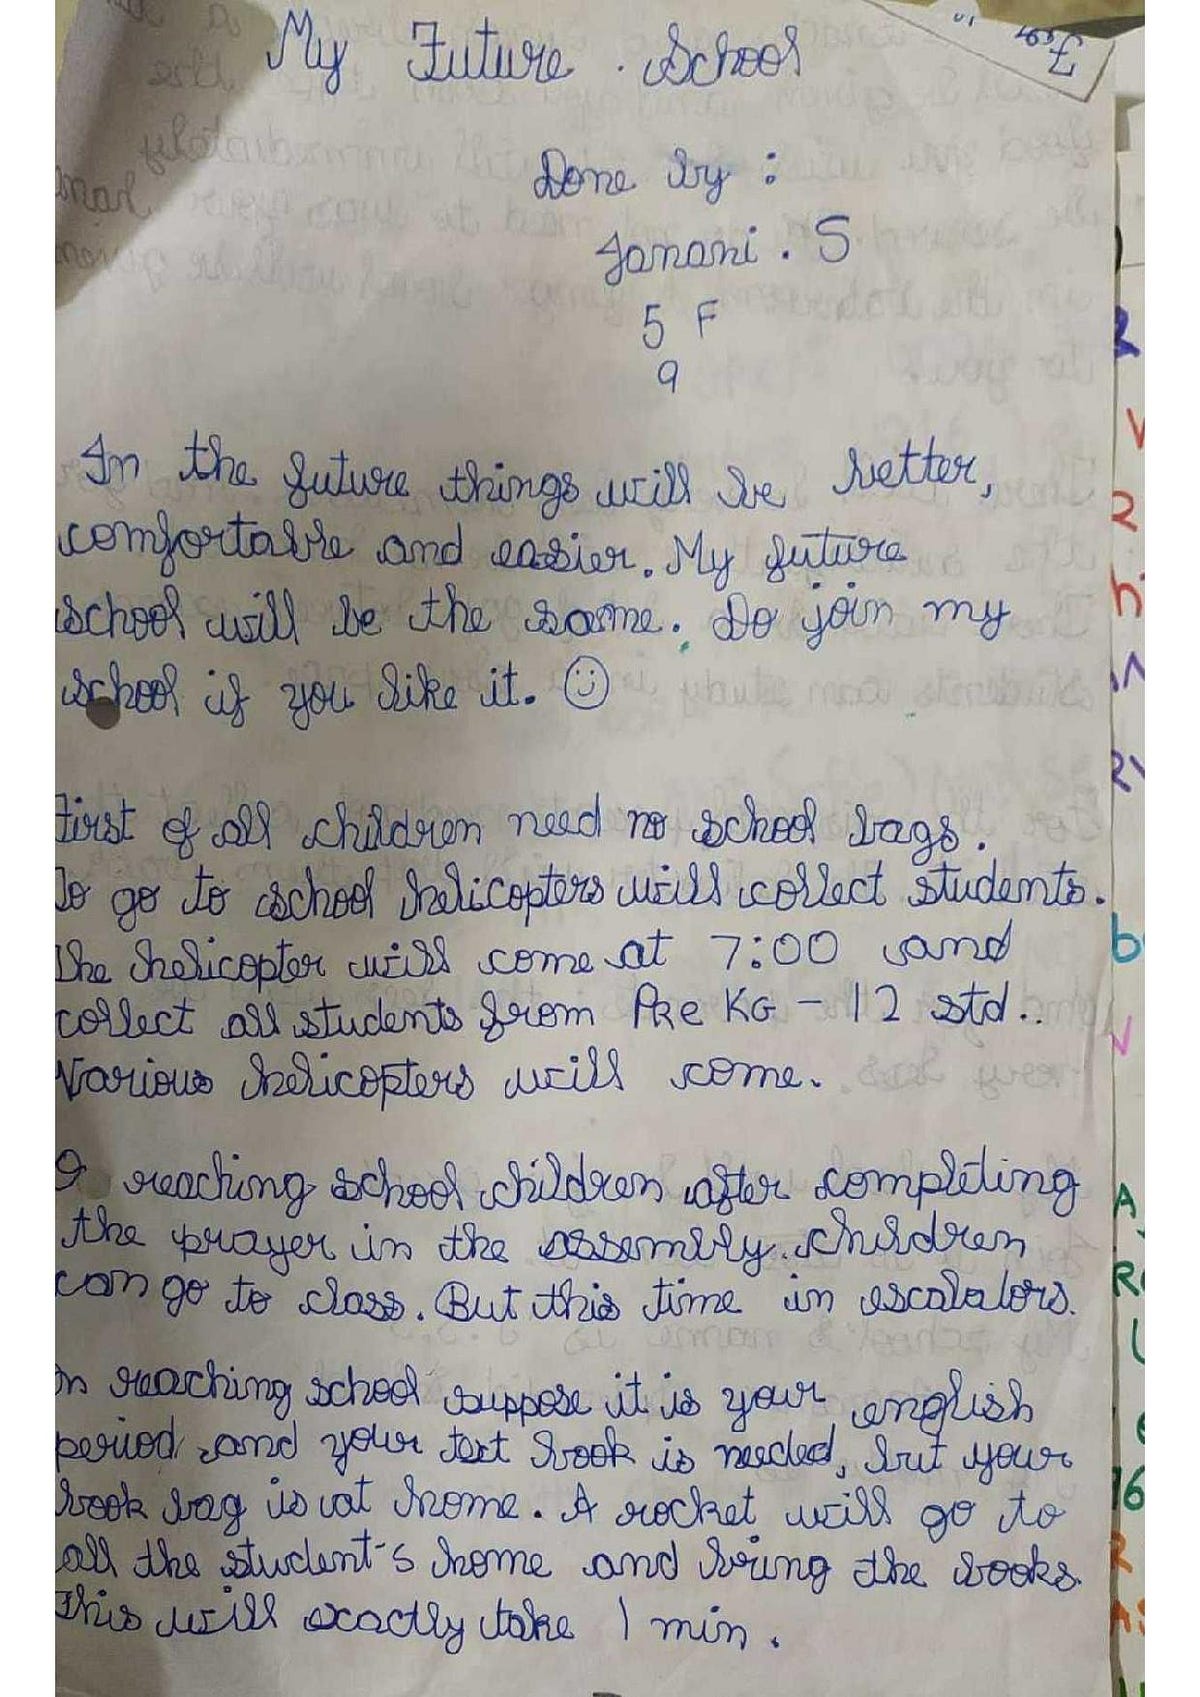 My Future School
Done by :
Janani . S
5 F
9
In the future things will be better,
comfortable and easier. My future
school will be the same. Do join my
school if you like it. ☺
First of all children need no school bags.
To go to school helicopters will collect students.
The helicopter will come at 7:00 and
collect all students from Pre KG - 12 std..
Various helicopters will come.
reaching school children after completing
the prayer in the assembly. children
can go to class. But this time in escalators.
In reaching school suppose it is your english
period and your text book is needed, but your
book bag is at home. A rocket will go to
all the student's home and bring the books.
This will exactly take 1 min.